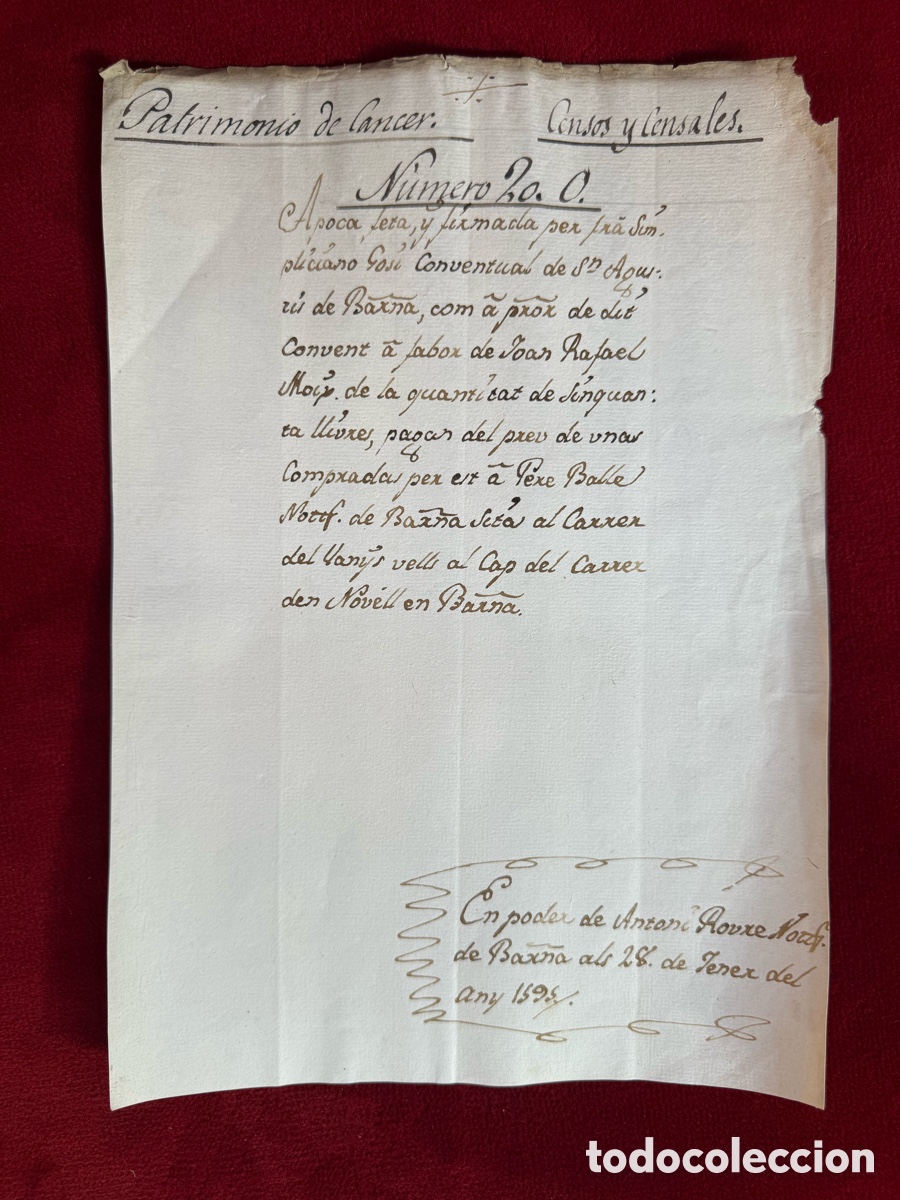 Patrimonio de Cancer. Censos y Censales.
Número 20. O.
Apoca feta, y firmada per frã Sim-
pliciano Gosi Conventual de Sⁿ Agus-
tis de Barña, com â pñor de dit
Convent â fabor de Joan Rafael
Moix. de la quantitat de Sinquan-
ta llivres, pagan del preu de unas
Compradas per est â Pere Balle
Nottf. de Barña Sita al Carrer
del Vanys vells al Cap del Carrer
den Novéll en Barña.
En poder de Antoni Rovre Nottf.
de Barña als 28. de Jener del
any 1595/.
todocoleccion